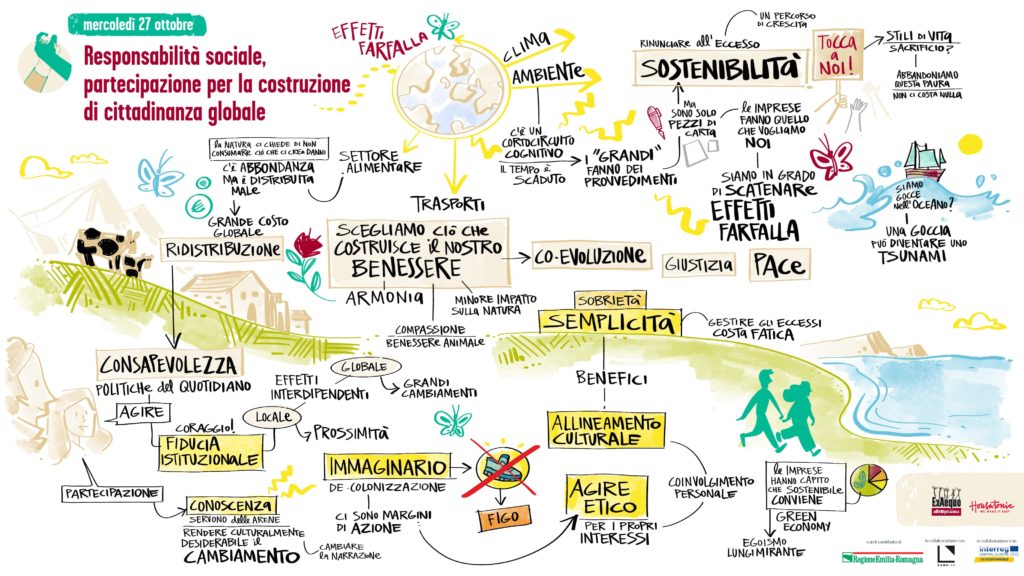 mercoledì 27 ottobre
Responsabilità sociale,
partecipazione per la costruzione
di cittadinanza globale
EFFETTI
FARFALLA
CLIMA
AMBIENTE
C'È UN
CORTOCIRCUITO
COGNITIVO
IL TEMPO È
SCADUTO
I "GRANDI"
FANNO DEI
PROVVEDIMENTI
MA
SONO SOLO
PEZZI DI
CARTA
UN PERCORSO
DI CRESCITA
RINUNCIARE ALL'ECCESSO
SOSTENIBILITÀ
TOCCA
A NOI!
STILI DI VITA
SACRIFICIO?
ABBANDONIAMO
QUESTA PAURA
NON CI COSTA NULLA
LE IMPRESE
FANNO QUELLO
CHE VOGLIAMO
NOI
SIAMO IN GRADO
DI SCATENARE
EFFETTI
FARFALLA
SIAMO
GOCCE
NELL'OCEANO?
UNA GOCCIA
PUÒ DIVENTARE UNO
TSUNAMI
LA NATURA CI CHIEDE DI NON
CONSUMARE CIÒ CHE CI CREA DANNI
C'È ABBONDANZA
MA È DISTRIBUITA
MALE
SETTORE
ALIMENTARE
GRANDE COSTO
GLOBALE
RIDISTRIBUZIONE
TRASPORTI
SCEGLIAMO CIÒ CHE
COSTRUISCE IL NOSTRO
BENESSERE
CO-EVOLUZIONE
GIUSTIZIA
PACE
ARMONIA
MINORE IMPATTO
SULLA NATURA
COMPASSIONE
BENESSERE ANIMALE
SOBRIETÀ
SEMPLICITÀ
GESTIRE GLI ECCESSI
COSTA FATICA
CONSAPEVOLEZZA
POLITICHE DEL QUOTIDIANO
AGIRE
CORAGGIO!
FIDUCIA
ISTITUZIONALE
EFFETTI
INTERDIPENDENTI
GLOBALE
GRANDI
CAMBIAMENTI
LOCALE
PROSSIMITÀ
BENEFICI
ALLINEAMENTO
CULTURALE
COINVOLGIMENTO
PERSONALE
PARTECIPAZIONE
CONOSCENZA
SERVONO DELLE ARENE
RENDERE CULTURALMENTE
DESIDERABILE IL
CAMBIAMENTO
CAMBIARE
LA NARRAZIONE
IMMAGINARIO
DE-COLONIZZAZIONE
CI SONO MARGINI
DI AZIONE
FIGO
AGIRE
ETICO
PER I PROPRI
INTERESSI
LE IMPRESE
HANNO CAPITO
CHE SOSTENIBILE
CONVIENE
GREEN
ECONOMY
EGOISMO
LUNGIMIRANTE
ExAequo
Housatonic
WE MAKE IT EASY
con il contributo di
RegioneEmilia-Romagna
in collaborazione con
in collaborazione con
interreg
CENTRAL EUROPE